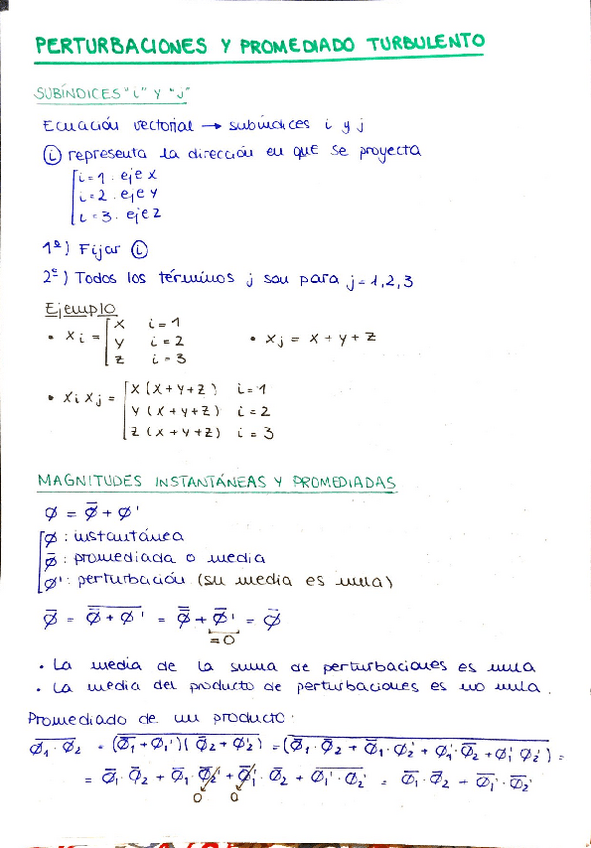 PERTURBACIONES Y PROMEDIADO TURBULENTO
SUBÍNDICES "i" Y "j"
Ecuación vectorial → subíndices i y j
ⓘ representa la dirección en que se proyecta
[i=1. eje X
i=2. eje Y
i=3. eje Z
1º) Fijar ⓘ
2º) Todos los términos j son para j=1,2,3
Ejemplo
• Xi = [X i=1
Y i=2
Z i=3
• Xj = X+Y+Z
• XiXj = [X(X+Y+Z) i=1
Y(X+Y+Z) i=2
Z(X+Y+Z) i=3
MAGNITUDES INSTANTÁNEAS Y PROMEDIADAS
Ø = Ø̅ + Ø'
[Ø: instantánea
Ø̅: promediada o media
Ø': perturbación (su media es nula)
Ø̅ = \overline{Ø̅ + Ø'} = \overline{Ø̅} + \overline{Ø'} = Ø̅
=0
• La media de la suma de perturbaciones es nula
• La media del producto de perturbaciones es no nula.
Promediado de un producto:
\overline{Ø₁·Ø₂} = \overline{(Ø̅₁+Ø₁')(Ø̅₂+Ø₂')} = \overline{(Ø̅₁·Ø̅₂ + Ø̅₁·Ø₂' + Ø₁'·Ø̅₂ + Ø₁'Ø₂')} =
= Ø̅₁·Ø̅₂ + Ø̅₁·\overline{Ø₂'} + \overline{Ø₁'}·Ø̅₂ + \overline{Ø₁'·Ø₂'} = Ø̅₁·Ø̅₂ + \overline{Ø₁'·Ø₂'}
0 0